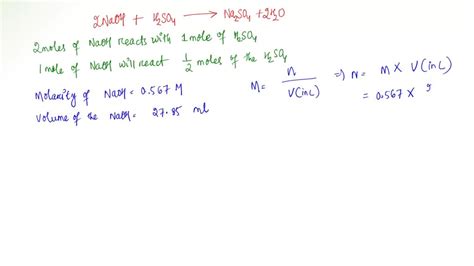 2NaOH + H2SO4 → Na2SO4 + 2H2O
2 moles of NaOH reacts with 1 mole of H2SO4
1 mole of NaOH will react 1/2 moles of the H2SO4
Molarity of NaOH = 0.567 M
Volume of the NaOH = 27.85 ml
M = n / V(in L) ⇒ n = M × V(in L)
= 0.567 ×